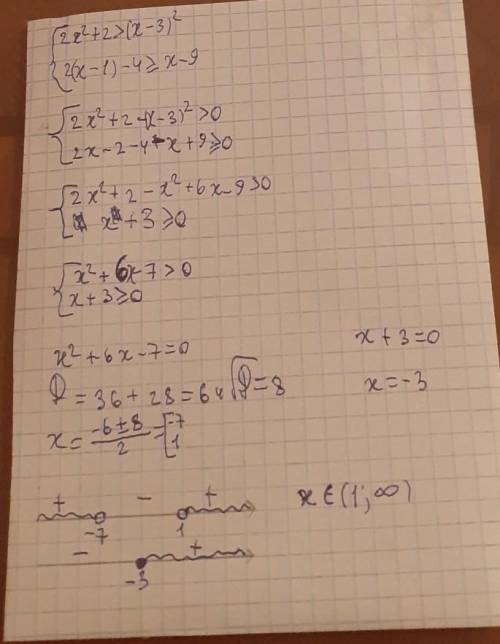 { 2x²+2>(x-3)²
{ 2(x-1)-4≥x-9
{ 2x²+2-(x-3)²>0
{ 2x-2-4-x+9≥0
{ 2x²+2-x²+6x-9>0
{ x+3≥0
{ x²+6x-7>0
{ x+3≥0
x²+6x-7=0
D=36+28=64 √D=8
x=(-6±8)/2=[-7 1
x+3=0
x=-3
+ - +
-7 1
- +
-3
x∈(1;∞)